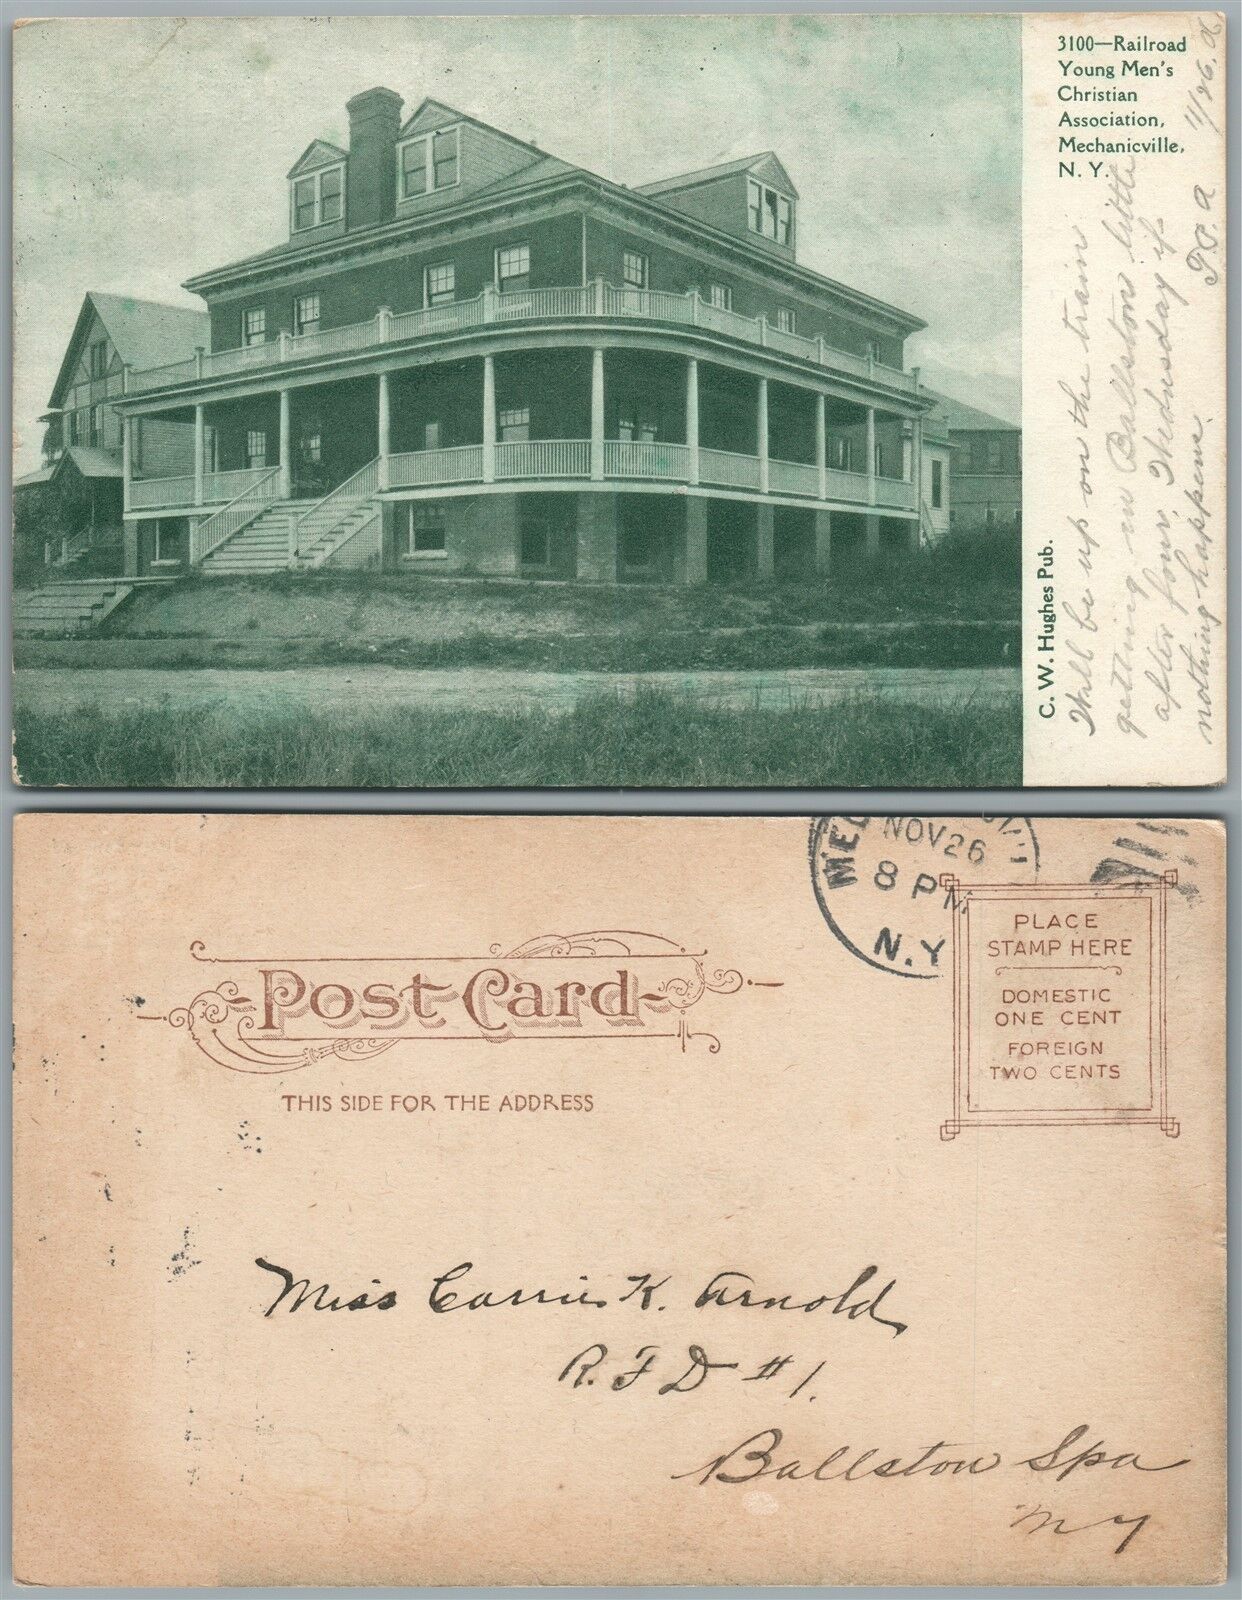 3100—Railroad
Young Men's
Christian
Association,
Mechanicville,
N. Y.
C. W. Hughes Pub.
Will be up on the train
getting in Ballston little
after four, Wednesday if
nothing happens.
11/26,
NOV 26
8 PM
N.Y
PLACE
STAMP HERE
DOMESTIC
ONE CENT
FOREIGN
TWO CENTS
Post Card
THIS SIDE FOR THE ADDRESS
Miss Carrie K. Arnold,
R. F D #1.
Ballston Spa
N Y